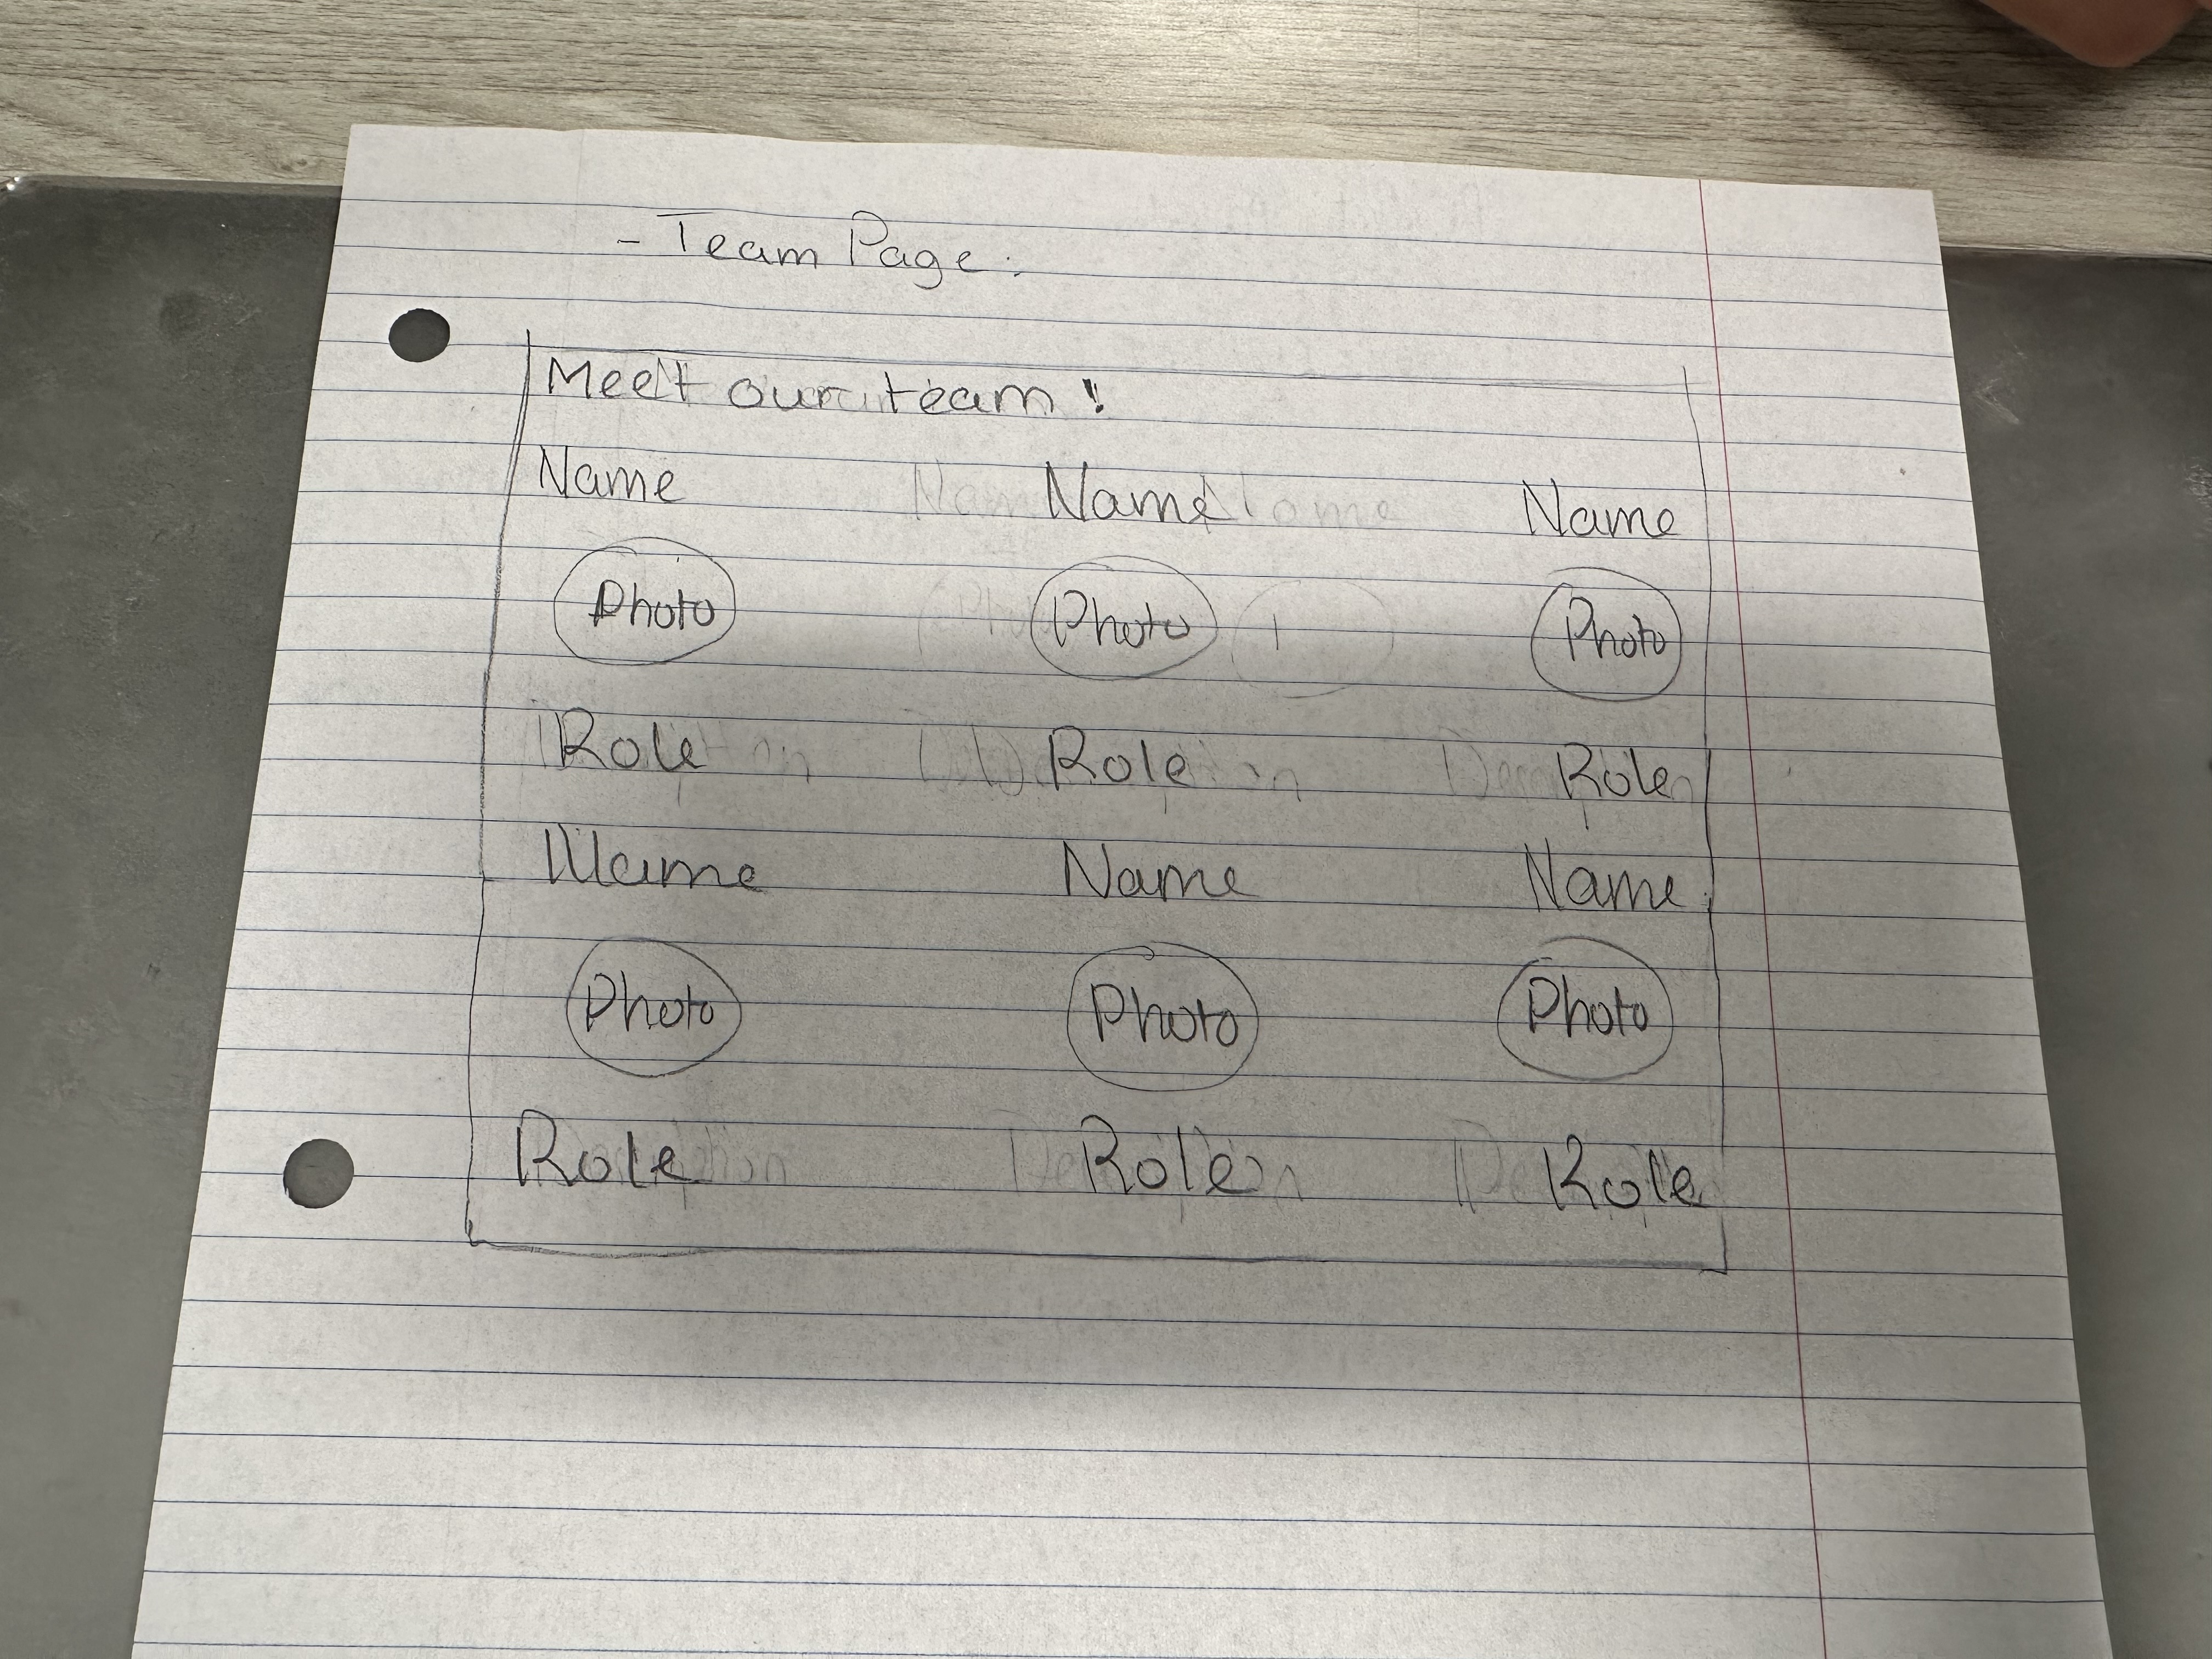 - Team Page:
Meet our team!
Name Name Name
Photo Photo Photo
Role Role Role
Name Name Name
Photo Photo Photo
Role Role Role